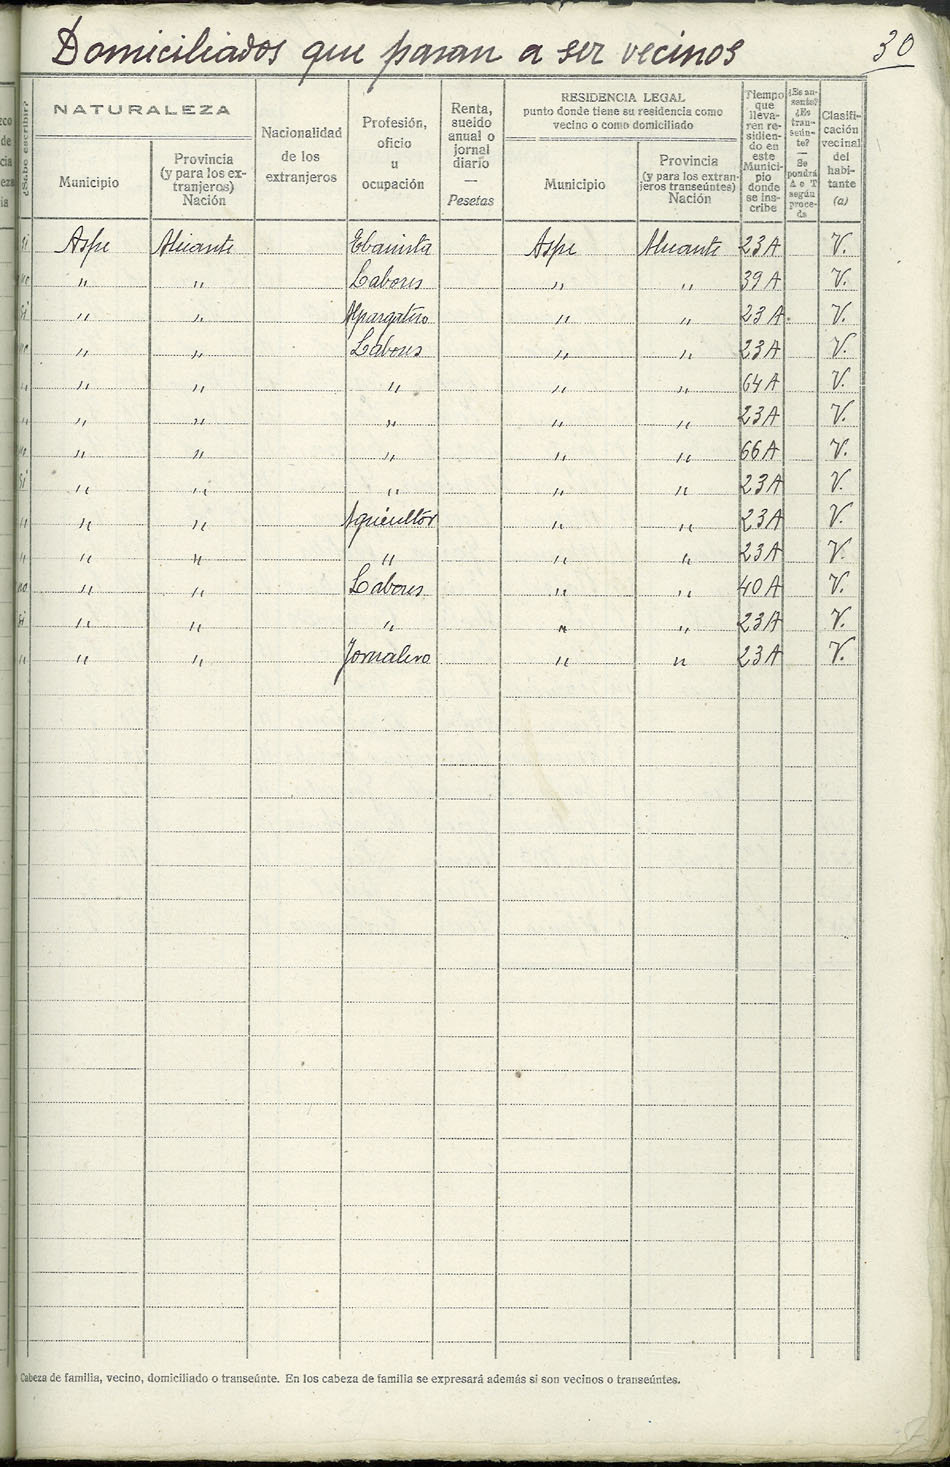 Domiciliados que pasan a ser vecinos 30
¿Sabe escribir?
NATURALEZA
Municipio
Provincia
(y para los ex-
tranjeros)
Nación
Nacionalidad
de los
extranjeros
Profesión,
oficio
u
ocupación
Renta,
sueldo
anual o
jornal
diario
—
Pesetas
RESIDENCIA LEGAL
punto donde tiene su residencia como
vecino o como domiciliado
Municipio
Provincia
(y para los extran-
jeros transeúntes)
Nación
Tiempo
que
lleva-
ren re-
sidien-
do en
este
Munici-
pio
donde
se ins-
cribe
¿Es au-
sente?
¿Es
tran-
seún-
te?
—
Se
pondrá
A o T
según
proce-
da
Clasifi-
cación
vecinal
del
habi-
tante
(a)
si Aspe Alicante Ebanista Aspe Alicante 23 A V.
" " Labores " " 39 A V.
si " " Alpargatero " " 23 A. V.
" " Labores " " 23 A V.
" " " " " " 64 A V.
" " " " " 23 A V.
" " " " " 66 A V.
si " " " " " 23 A V.
" " " Agricultor " " 23 A V.
" " " " " " 23 A V.
no " " Labores " " 40 A V.
si " " " " " 23 A V.
" " " Jornalero " " 23 A V.
Cabeza de familia, vecino, domiciliado o transeúnte. En los cabeza de familia se expresará además si son vecinos o transeúntes.